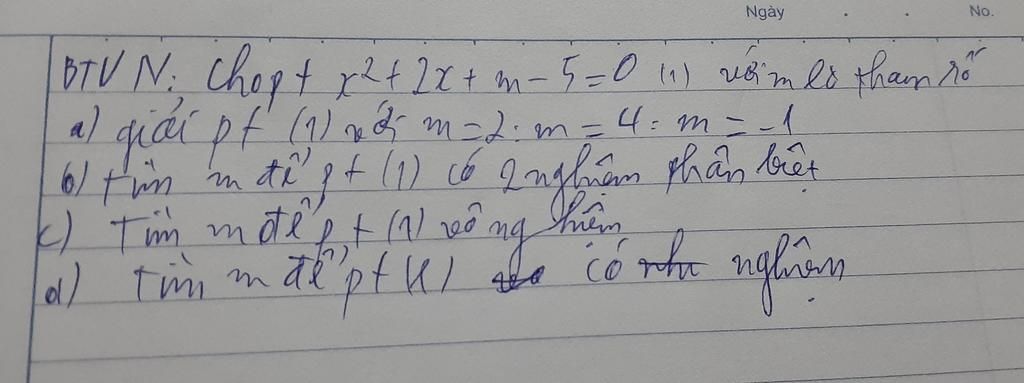 Ngày . . No.
BTVN: Cho pt x²+2x+m-5=0 (1) với m là tham số
a) giải pt (1) với m=2; m=4; m=-1
b) tìm m để pt (1) có 2 nghiệm phân biệt
c) Tìm m để pt (1) vô nghiệm
d) Tìm m để pt (1) có nghiệm